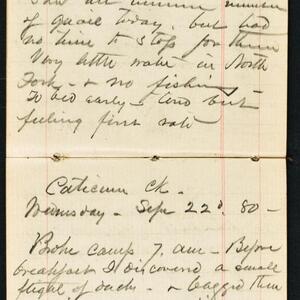 Saw an immense number
of quail today, but had
no time to stop for them
Very little water in North
Fork - & no fishing -
To bed early - and but
feeling first rate
Ck -
Wednesday - Sept 22d 80 -
Broke camp 7. am - Before
breakfast I discovered a small
flight of ducks - & bagged them